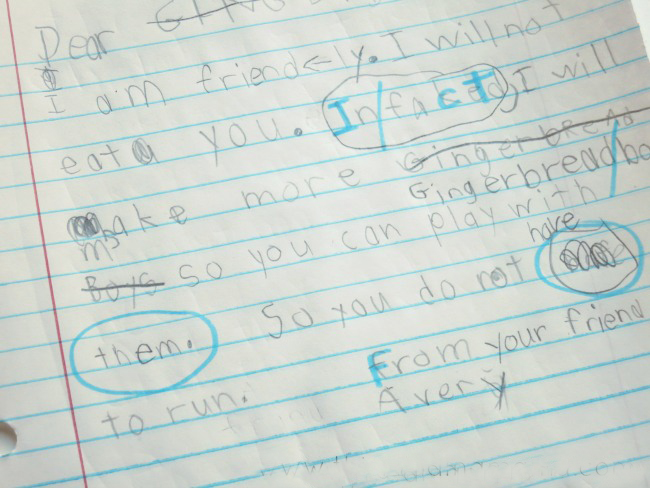 Dear
I am friendly. I will not
eat you. In fact I will
make more Gingerbread
Gingerbread bo
Boys so you can play with
them. So you do not have
to run.
From your friend
Avery